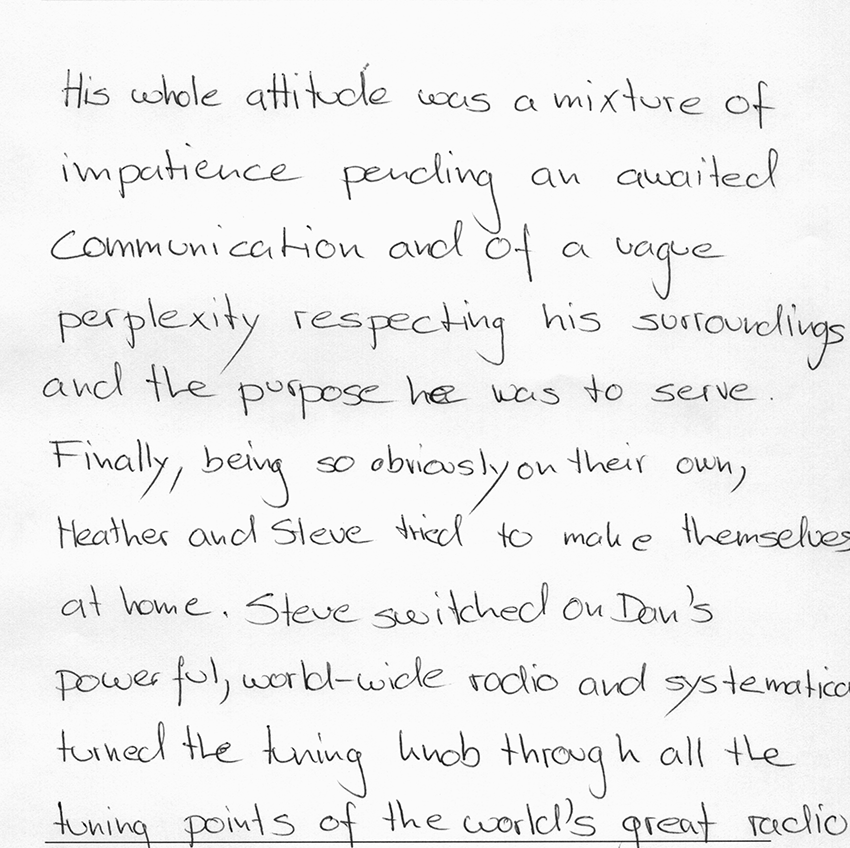 His whole attitude was a mixture of
impatience pending an awaited
communication and of a vague
perplexity respecting his surroundings
and the purpose he was to serve.
Finally, being so obviously on their own,
Heather and Steve tried to make themselves
at home. Steve switched on Dan's
powerful, world-wide radio and systematica
turned the tuning knob through all the
tuning points of the world's great radio